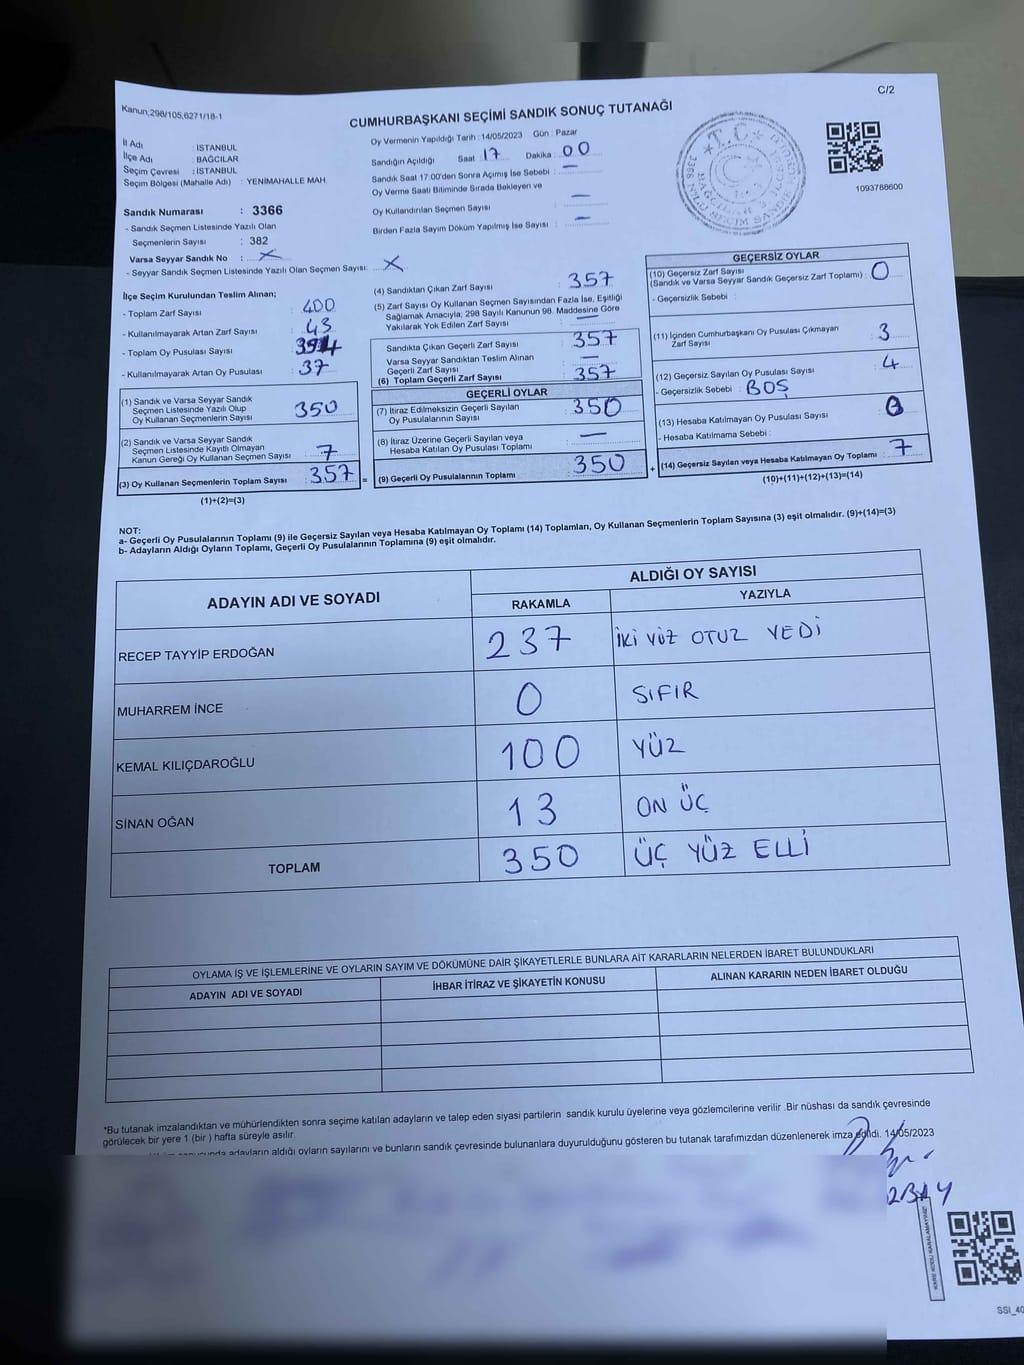 C/2
Kanun:298/105,6271/18-1
CUMHURBAŞKANI SEÇİMİ SANDIK SONUÇ TUTANAĞI
1093788600
İl Adı : İSTANBUL
İlçe Adı : BAĞCILAR
Seçim Çevresi : İSTANBUL
Seçim Bölgesi (Mahalle Adı) : YENİMAHALLE MAH.
Sandık Numarası : 3366
- Sandık Seçmen Listesinde Yazılı Olan
Seçmenlerin Sayısı : 382
Varsa Seyyar Sandık No : X
- Seyyar Sandık Seçmen Listesinde Yazılı Olan Seçmen Sayısı: X
Oy Vermenin Yapıldığı Tarih : 14/05/2023 Gün : Pazar
Sandığın Açıldığı Saat : 17 Dakika : 00
Sandık Saat 17:00'den Sonra Açımış İse Sebebi : —
Oy Verme Saati Bitiminde Sırada Bekleyen ve
Oy Kullandırılan Seçmen Sayısı : —
Birden Fazla Sayım Döküm Yapılmış İse Sayısı : —
T.C.
İlçe Seçim Kurulundan Teslim Alınan;
- Toplam Zarf Sayısı : 400
- Kullanılmayarak Artan Zarf Sayısı : 43
- Toplam Oy Pusulası Sayısı : 394
- Kullanılmayarak Artan Oy Pusulası : 37
(1) Sandık ve Varsa Seyyar Sandık
Seçmen Listesinde Yazılı Olup
Oy Kullanan Seçmenlerin Sayısı 350
(2) Sandık ve Varsa Seyyar Sandık
Seçmen Listesinde Kayıtlı Olmayan
Kanun Gereği Oy Kullanan Seçmen Sayısı : 7
(3) Oy Kullanan Seçmenlerin Toplam Sayısı : 357 =
(1)+(2)=(3)
(4) Sandıktan Çıkan Zarf Sayısı : 357
(5) Zarf Sayısı Oy Kullanan Seçmen Sayısından Fazla İse, Eşitliği
Sağlamak Amacıyla, 298 Sayılı Kanunun 98. Maddesine Göre
Yakılarak Yok Edilen Zarf Sayısı : —
Sandıkta Çıkan Geçerli Zarf Sayısı : 357
Varsa Seyyar Sandıktan Teslim Alınan
Geçerli Zarf Sayısı : —
(6) Toplam Geçerli Zarf Sayısı : 357
GEÇERLİ OYLAR
(7) İtiraz Edilmeksizin Geçerli Sayılan
Oy Pusulalarının Sayısı : 350
(8) İtiraz Üzerine Geçerli Sayılan veya
Hesaba Katılan Oy Pusulası Toplamı : —
(9) Geçerli Oy Pusulalarının Toplamı : 350 +
GEÇERSİZ OYLAR
(10) Geçersiz Zarf Sayısı
(Sandık ve Varsa Seyyar Sandık Geçersiz Zarf Toplamı) : 0
- Geçersizlik Sebebi :
(11) İçinden Cumhurbaşkanı Oy Pusulası Çıkmayan
Zarf Sayısı : 3
(12) Geçersiz Sayılan Oy Pusulası Sayısı : 4
- Geçersizlik Sebebi : BOŞ
(13) Hesaba Katılmayan Oy Pusulası Sayısı : 0
- Hesaba Katılmama Sebebi :
(14) Geçersiz Sayılan veya Hesaba Katılmayan Oy Toplamı : 7
(10)+(11)+(12)+(13)=(14)
NOT:
a- Geçerli Oy Pusulalarının Toplamı (9) ile Geçersiz Sayılan veya Hesaba Katılmayan Oy Toplamı (14) Toplamları, Oy Kullanan Seçmenlerin Toplam Sayısına (3) eşit olmalıdır. (9)+(14)=(3)
b- Adayların Aldığı Oyların Toplamı, Geçerli Oy Pusulalarının Toplamına (9) eşit olmalıdır.
ADAYIN ADI VE SOYADI
ALDIĞI OY SAYISI
RAKAMLA YAZIYLA
RECEP TAYYİP ERDOĞAN 237 İKİ YÜZ OTUZ YEDİ
MUHARREM İNCE 0 SIFIR
KEMAL KILIÇDAROĞLU 100 YÜZ
SİNAN OĞAN 13 ON ÜÇ
TOPLAM 350 ÜÇ YÜZ ELLİ
OYLAMA İŞ VE İŞLEMLERİNE VE OYLARIN SAYIM VE DÖKÜMÜNE DAİR ŞİKAYETLERLE BUNLARA AİT KARARLARIN NELERDEN İBARET BULUNDUKLARI
ADAYIN ADI VE SOYADI İHBAR İTİRAZ VE ŞİKAYETİN KONUSU ALINAN KARARIN NEDEN İBARET OLDUĞU
*Bu tutanak imzalandıktan ve mühürlendikten sonra seçime katılan adayların ve talep eden siyasi partilerin sandık kurulu üyelerine veya gözlemcilerine verilir .Bir nüshası da sandık çevresinde
görülecek bir yere 1 (bir ) hafta süreyle asılır.
adayların aldığı oyların sayılarını ve bunların sandık çevresinde bulunanlara duyurulduğunu gösteren bu tutanak tarafımızdan düzenlenerek imza edildi. 14/05/2023
KARE KODU KARALAMAYINIZ!